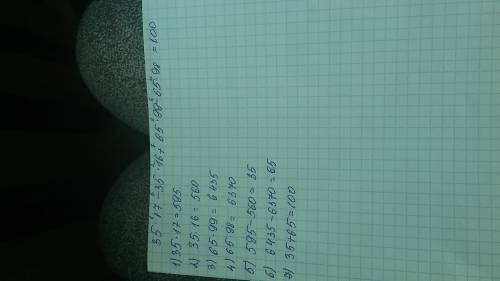 35·17-35·16+65·99-65·98=100
1) 35·17=595
2) 35·16=560
3) 65·99=6435
4) 65·98=6370
5) 595-560=35
6) 6435-6370=65
7) 35+65=100